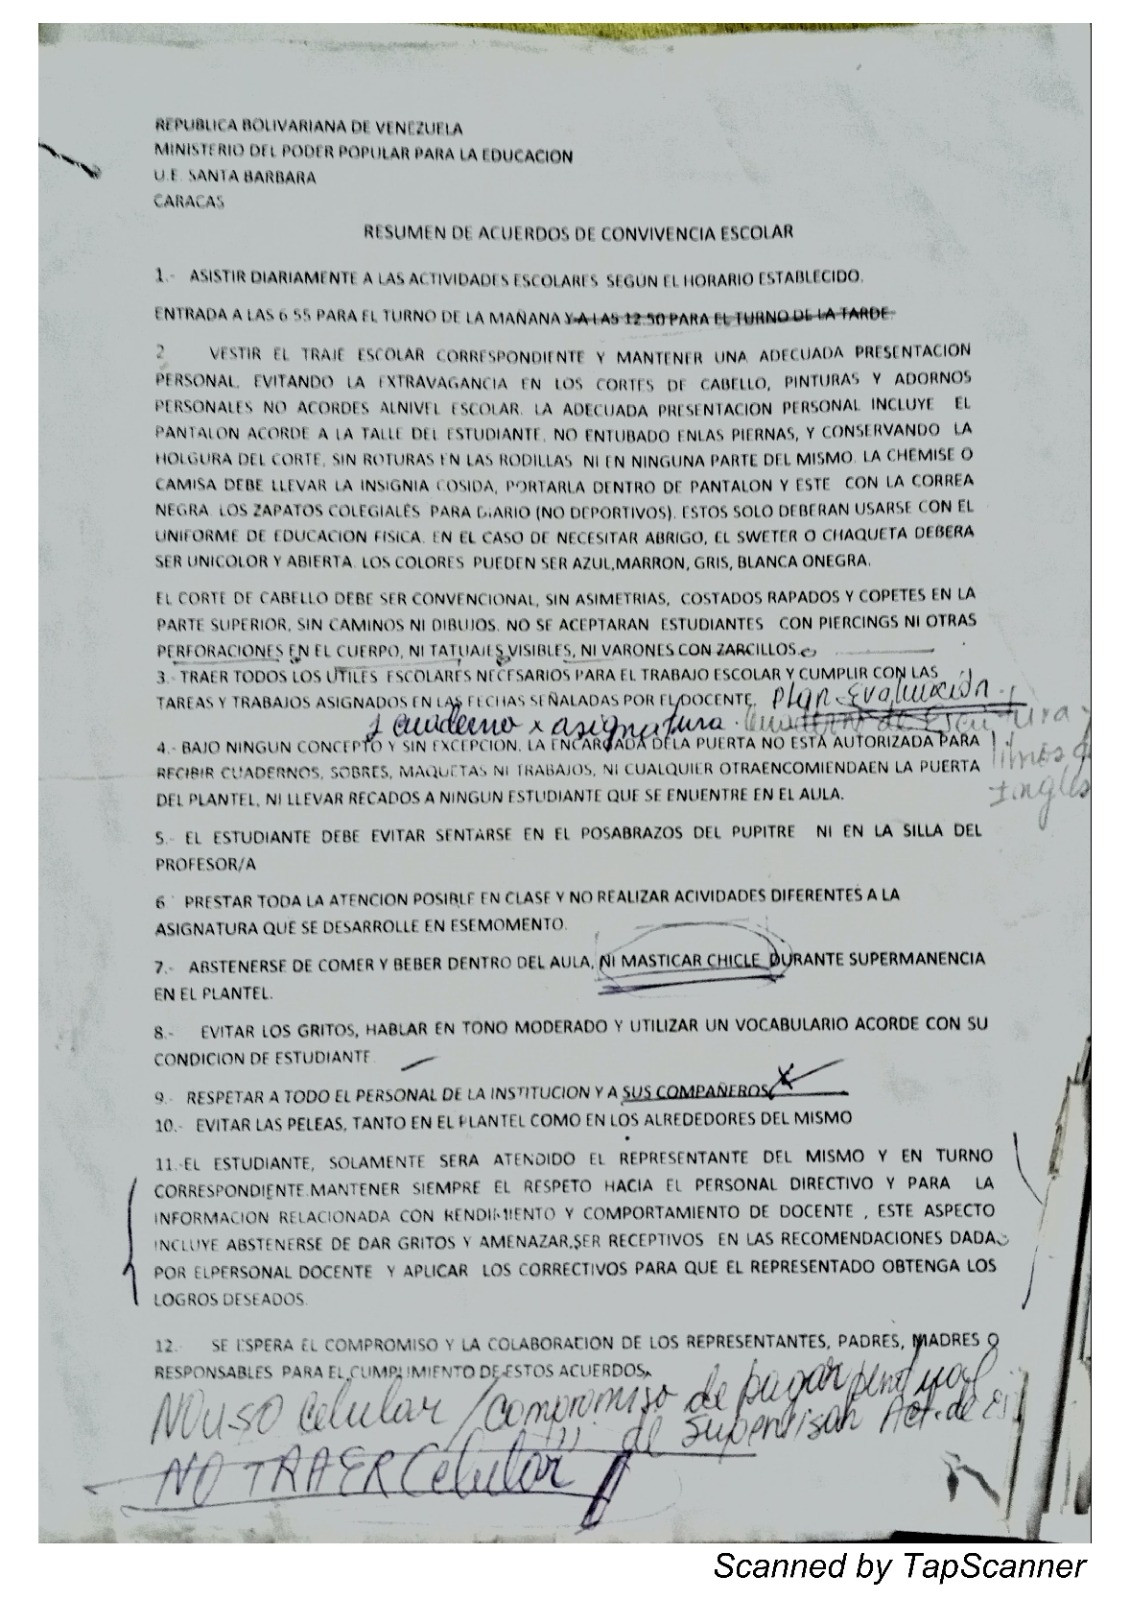 REPUBLICA BOLIVARIANA DE VENEZUELA
MINISTERIO DEL PODER POPULAR PARA LA EDUCACION
U.E. SANTA BARBARA
CARACAS
RESUMEN DE ACUERDOS DE CONVIVENCIA ESCOLAR
1.- ASISTIR DIARIAMENTE A LAS ACTIVIDADES ESCOLARES SEGÚN EL HORARIO ESTABLECIDO.
ENTRADA A LAS 6 55 PARA EL TURNO DE LA MAÑANA Y A LAS 12:50 PARA EL TURNO DE LA TARDE.
2 VESTIR EL TRAJE ESCOLAR CORRESPONDIENTE Y MANTENER UNA ADECUADA PRESENTACION
PERSONAL, EVITANDO LA EXTRAVAGANCIA EN LOS CORTES DE CABELLO, PINTURAS Y ADORNOS
PERSONALES NO ACORDES ALNIVEL ESCOLAR. LA ADECUADA PRESENTACION PERSONAL INCLUYE EL
PANTALON ACORDE A LA TALLE DEL ESTUDIANTE, NO ENTUBADO ENLAS PIERNAS, Y CONSERVANDO LA
HOLGURA DEL CORTE, SIN ROTURAS EN LAS RODILLAS NI EN NINGUNA PARTE DEL MISMO. LA CHEMISE O
CAMISA DEBE LLEVAR LA INSIGNIA COSIDA, PORTARLA DENTRO DE PANTALON Y ESTE CON LA CORREA
NEGRA. LOS ZAPATOS COLEGIALES PARA DIARIO (NO DEPORTIVOS). ESTOS SOLO DEBERAN USARSE CON EL
UNIFORME DE EDUCACION FISICA. EN EL CASO DE NECESITAR ABRIGO, EL SWETER O CHAQUETA DEBERA
SER UNICOLOR Y ABIERTA. LOS COLORES PUEDEN SER AZUL,MARRON, GRIS, BLANCA ONEGRA.
EL CORTE DE CABELLO DEBE SER CONVENCIONAL, SIN ASIMETRIAS, COSTADOS RAPADOS Y COPETES EN LA
PARTE SUPERIOR, SIN CAMINOS NI DIBUJOS. NO SE ACEPTARAN ESTUDIANTES CON PIERCINGS NI OTRAS
PERFORACIONES EN EL CUERPO, NI TATUAJES VISIBLES, NI VARONES CON ZARCILLOS.
3.- TRAER TODOS LOS ÚTILES ESCOLARES NECESARIOS PARA EL TRABAJO ESCOLAR Y CUMPLIR CON LAS
TAREAS Y TRABAJOS ASIGNADOS EN LAS FECHAS SEÑALADAS POR EL DOCENTE. Plan Evaluación
1 cuaderno x asignatura. Cuaderno de escritura y
libros de
Inglés
4.- BAJO NINGUN CONCEPTO Y SIN EXCEPCION, LA ENCARGADA DELA PUERTA NO ESTA AUTORIZADA PARA
RECIBIR CUADERNOS, SOBRES, MAQUETAS NI TRABAJOS, NI CUALQUIER OTRAENCOMIENDAEN LA PUERTA
DEL PLANTEL, NI LLEVAR RECADOS A NINGUN ESTUDIANTE QUE SE ENUENTRE EN EL AULA.
5.- EL ESTUDIANTE DEBE EVITAR SENTARSE EN EL POSABRAZOS DEL PUPITRE NI EN LA SILLA DEL
PROFESOR/A
6 PRESTAR TODA LA ATENCION POSIBLE EN CLASE Y NO REALIZAR ACIVIDADES DIFERENTES A LA
ASIGNATURA QUE SE DESARROLLE EN ESEMOMENTO.
7.- ABSTENERSE DE COMER Y BEBER DENTRO DEL AULA, NI MASTICAR CHICLE DURANTE SUPERMANENCIA
EN EL PLANTEL.
8.- EVITAR LOS GRITOS, HABLAR EN TONO MODERADO Y UTILIZAR UN VOCABULARIO ACORDE CON SU
CONDICION DE ESTUDIANTE
9.- RESPETAR A TODO EL PERSONAL DE LA INSTITUCION Y A SUS COMPAÑEROS
10.- EVITAR LAS PELEAS, TANTO EN EL PLANTEL COMO EN LOS ALREDEDORES DEL MISMO
11.-EL ESTUDIANTE, SOLAMENTE SERA ATENDIDO EL REPRESENTANTE DEL MISMO Y EN TURNO
CORRESPONDIENTE.MANTENER SIEMPRE EL RESPETO HACIA EL PERSONAL DIRECTIVO Y PARA LA
INFORMACION RELACIONADA CON RENDIMIENTO Y COMPORTAMIENTO DE DOCENTE , ESTE ASPECTO
INCLUYE ABSTENERSE DE DAR GRITOS Y AMENAZAR,SER RECEPTIVOS EN LAS RECOMENDACIONES DADAS
POR ELPERSONAL DOCENTE Y APLICAR LOS CORRECTIVOS PARA QUE EL REPRESENTADO OBTENGA LOS
LOGROS DESEADOS.
12. SE ESPERA EL COMPROMISO Y LA COLABORACION DE LOS REPRESENTANTES, PADRES, MADRES O
RESPONSABLES PARA EL CUMPLIMIENTO DE ESTOS ACUERDOS.
NO uso celular / compromiso de pagar puntual
de Supervisar Act. de
NO TRAER Celular
Scanned by TapScanner